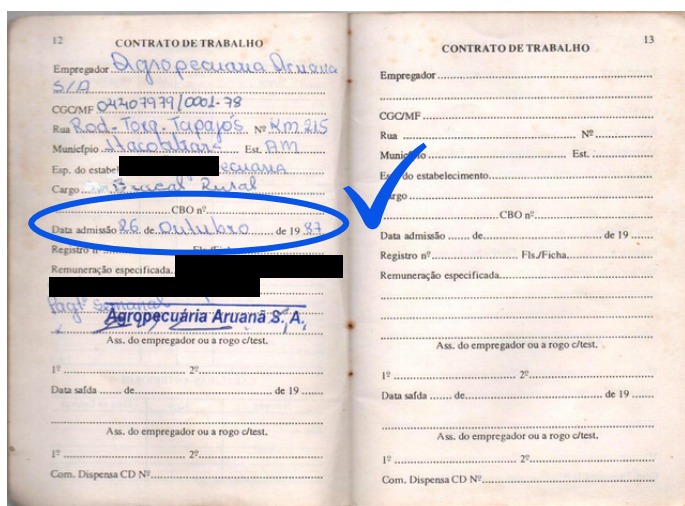 12
CONTRATO DE TRABALHO
Empregador Agropecuaria Aruana
S/A
CGC/MF 04407979/0001-78
Rua Rod. Torq. Tapajós Nº Km 215
Município Itacoatiara Est. AM
Esp. do estabel
Cargo Braçal Rural
CBO nº
Data admissão 26 de Outubro de 19 87
Registro nº Fls./Ficha
Remuneração especificada
Pagtº Semanal
Agropecuária Aruanã S, A,
Ass. do empregador ou a rogo c/test.
1º 2º
Data saída de de 19
Ass. do empregador ou a rogo c/test.
1º 2º
Com. Dispensa CD Nº
13
CONTRATO DE TRABALHO
Empregador
CGC/MF
Rua Nº
Município Est.
Esp. do estabelecimento
Cargo
CBO nº
Data admissão de de 19
Registro nº Fls./Ficha
Remuneração especificada
Ass. do empregador ou a rogo c/test.
1º 2º
Data saída de de 19
Ass. do empregador ou a rogo c/test.
1º 2º
Com. Dispensa CD Nº